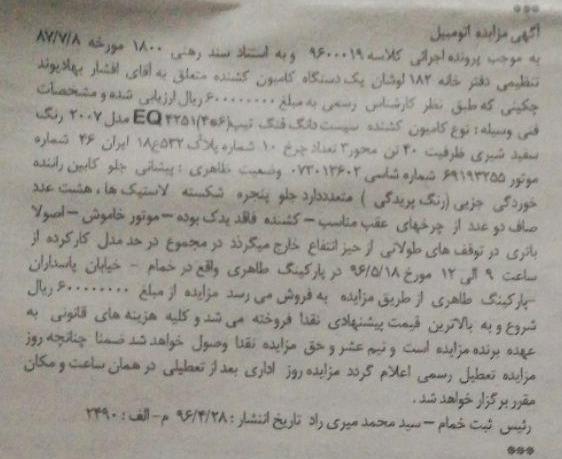 ***
آگهی مزایده اتومبیل
به موجب پرونده اجرائی کلاسه ۹۶۰۰۰۱۹ و به استناد سند رهنی ۱۸۰۰ مورخه ۸۷/۷/۸
تنظیمی دفتر خانه ۱۸۲ لوشان یک دستگاه کامیون کشنده متعلق به آقای افشار بهادیوند
چگینی که طبق نظر کارشناس رسمی به مبلغ ۶۰۰۰۰۰۰۰۰ ریال ارزیابی شده و مشخصات
فنی وسیله : نوع کامیون کشنده سیستم دانگ فنگ تیپ EQ ۴۲۵۱/۴*۶ مدل ۲۰۰۷ رنگ
سفید شیری ظرفیت ۴۰ تن محور ۳ تعداد چرخ ۱۰ شماره پلاک ۵۳۲ع۱۸ ایران ۴۶ شماره
موتور ۶۹۱۹۳۲۵۵ شماره شاسی ۰۷۳۰۱۳۶۰۲ وضعیت ظاهری : پیشانی جلو کابین راننده
خوردگی جزیی (رنگ پریدگی ) متعدددارد جلو پنجره شکسته لاستیک ها ، هشت عدد
صاف دو عدد از چرخهای عقب مناسب – کشنده فاقد یدک بوده – موتور خاموش – اصولا
باتری در توقف های طولانی از حیز انتفاع خارج میگردند در مجموع در حد مدل کارکرده از
ساعت ۹ الی ۱۲ مورخ ۹۶/۵/۱۸ در پارکینگ طاهری واقع در خمام – خیابان پاسداران
–پارکینگ طاهری از طریق مزایده به فروش می رسد مزایده از مبلغ ۶۰۰۰۰۰۰۰۰ ریال
شروع و به بالاترین قیمت پیشنهادی نقدا فروخته می شد و کلیه هزینه های قانونی به
عهده برنده مزایده است و نیم عشر و حق مزایده نقدا وصول خواهد شد ضمنا چنانچه روز
مزایده تعطیل رسمی اعلام گردد مزایده روز اداری بعد از تعطیلی در همان ساعت و مکان
مقرر برگزار خواهد شد .
رئیس ثبت خمام – سید محمد میری راد تاریخ انتشار : ۹۶/۴/۲۸ م – الف : ۲۴۹۰
***